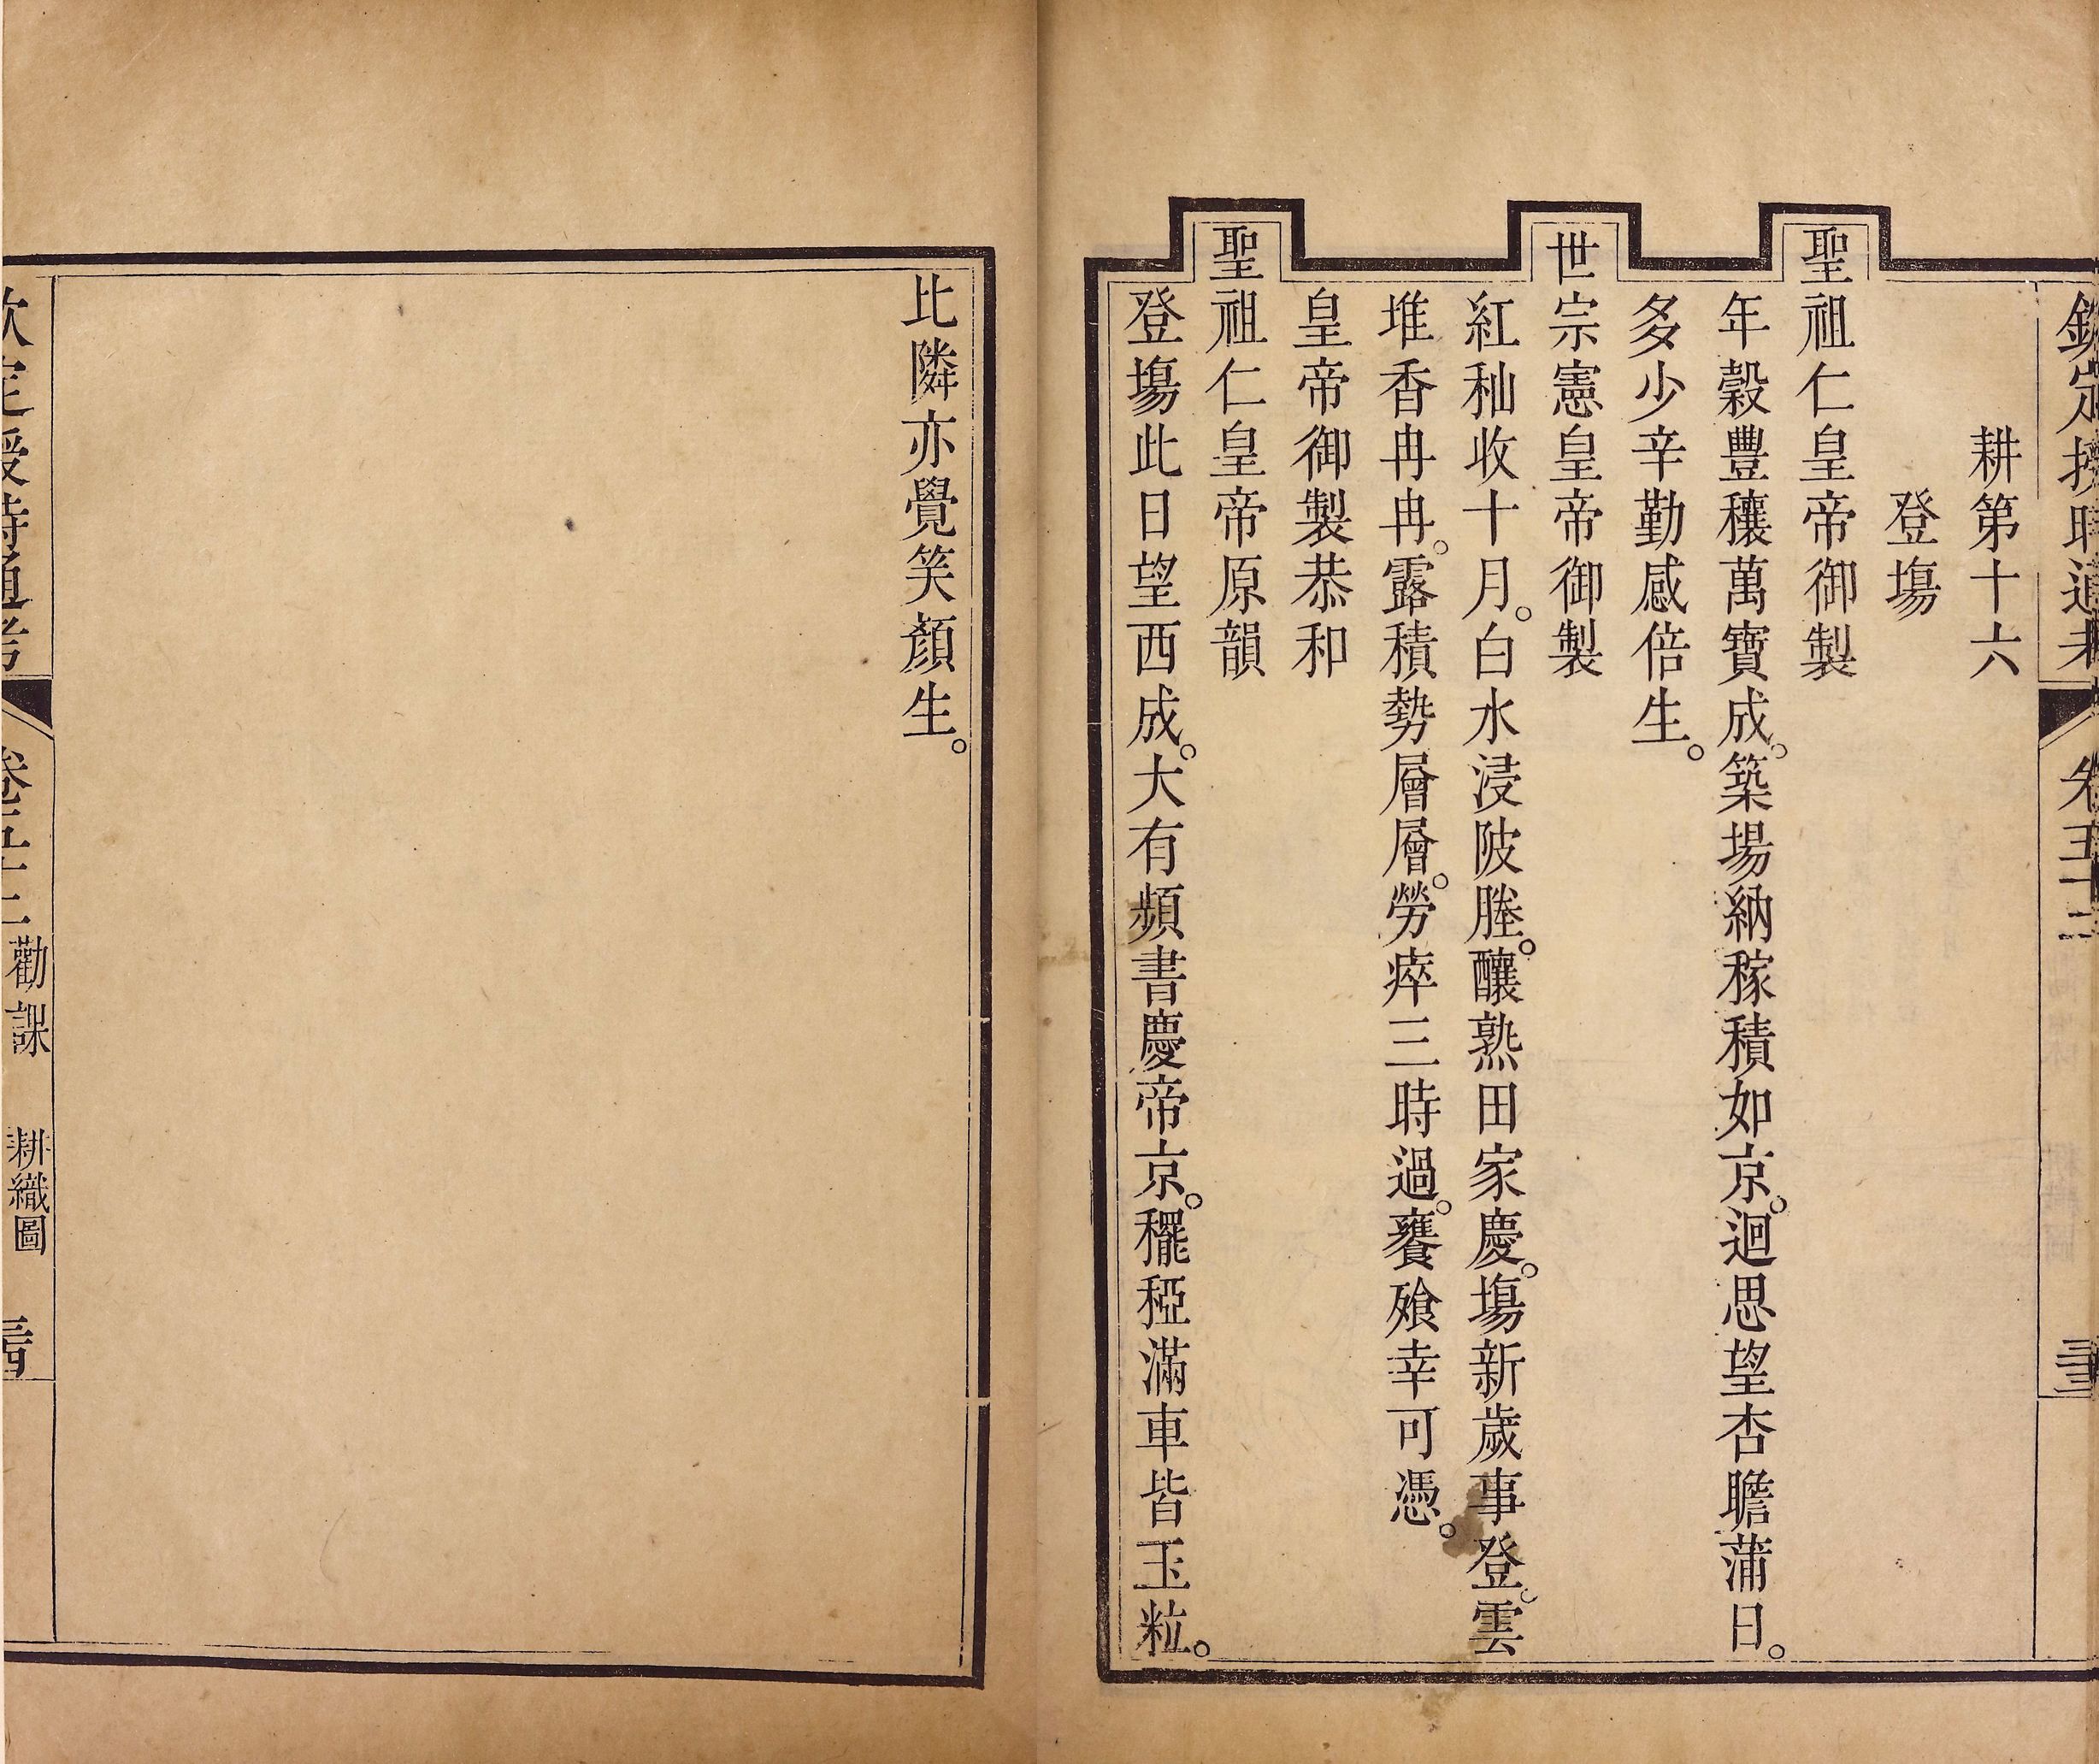 欽定授時通考 卷五十二
耕第十六
登塲
聖祖仁皇帝御製
年穀豐穰萬寶成。築場納稼積如京。迴思望杏瞻蒲日。
多少辛勤感倍生。
世宗憲皇帝御製
紅秈收十月。白水浸陂塍。釀熟田家慶。塲新歲事登。雲
堆香冉冉。露積勢層層。勞瘁三時過。饔飱幸可憑。
皇帝御製恭和
聖祖仁皇帝原韻
登塲此日望西成。大有頻書慶帝京。䆉稏滿車皆玉粒。
比隣亦覺笑顏生。
欽定授時通考 卷五十二 勸課 耕織圖